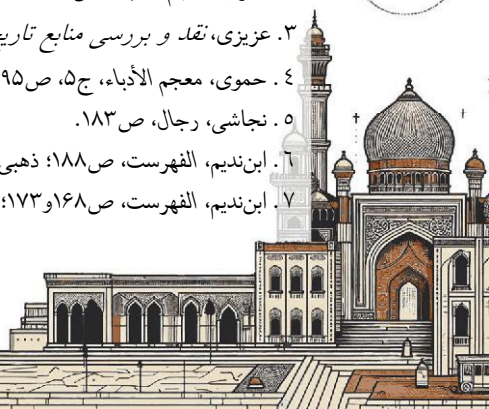 ۳. عزیزی، نقد و بررسی منابع تاریخ
۴. حموی، معجم الأدباء، ج۵، ص۹۵
۵. نجاشی، رجال، ص۱۸۳.
۶. ابن‌ندیم، الفهرست، ص۱۸۸؛ ذهبی
۷. ابن‌ندیم، الفهرست، ص۱۶۸و۱۷۳؛